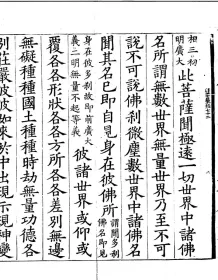 相三初
明廣大
此菩薩聞極遠一切世界中諸佛
名所謂無數世界無量世界乃至不可
說不可說佛刹微塵數世界中諸佛名
聞其名已即自見身在彼佛所
謂聞多刹
佛名即見
身在彼多刹故即前廣大
義二明無量不起等義
彼諸世界或仰或
覆各各形狀各各方所各各差別無邊
無礙種種國土種種時劫無量功德各
別莊嚴彼彼如來於中出現示現神變